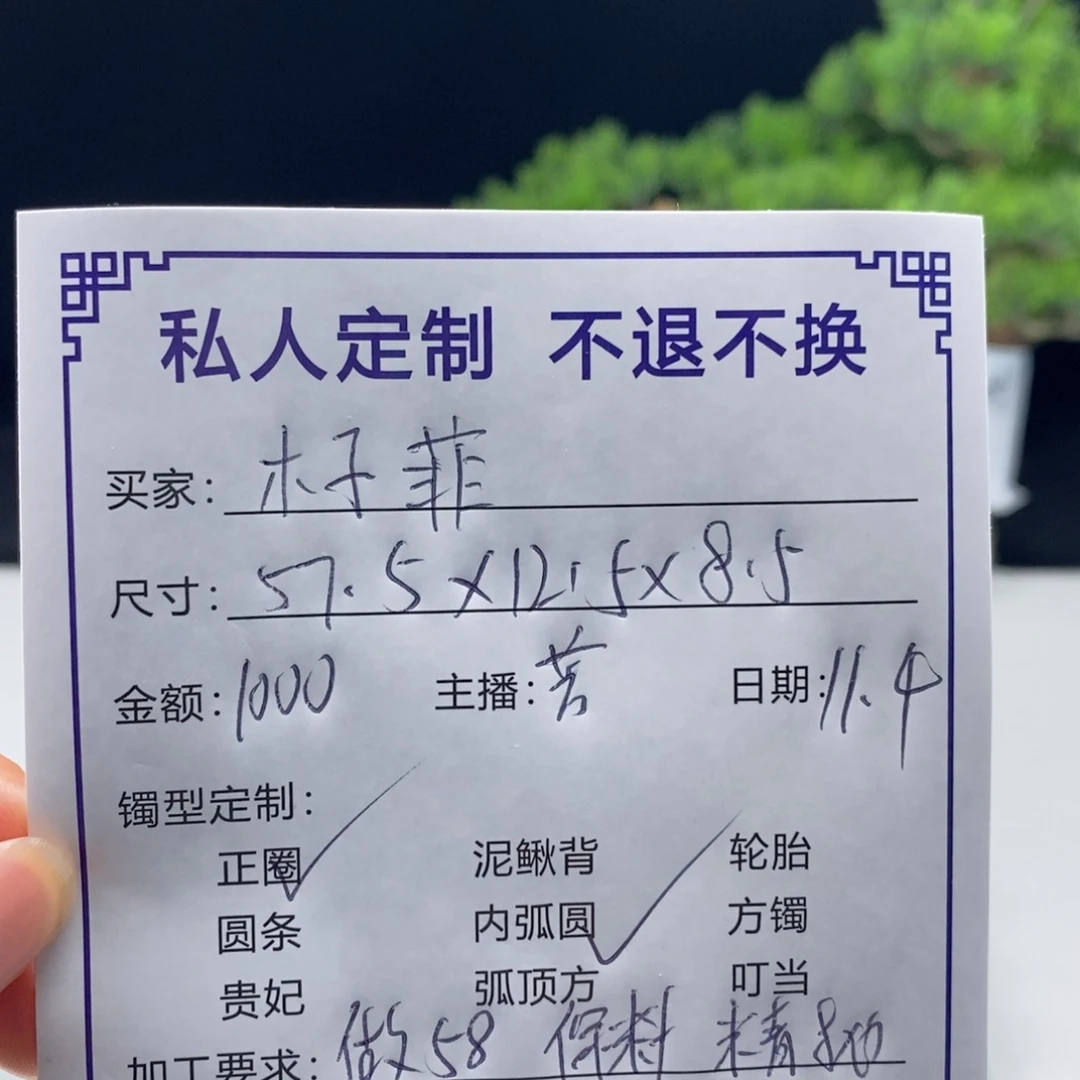 私人定制 不退不换
买家: 木子菲
尺寸: 57.5×12.5×8.5
金额: 1000 主播: 苦 日期: 11.4
镯型定制:
正圈 泥鳅背 轮胎
圆条 内弧圆 方镯
贵妃 弧顶方 叮当
加工要求: 做58 保料 精